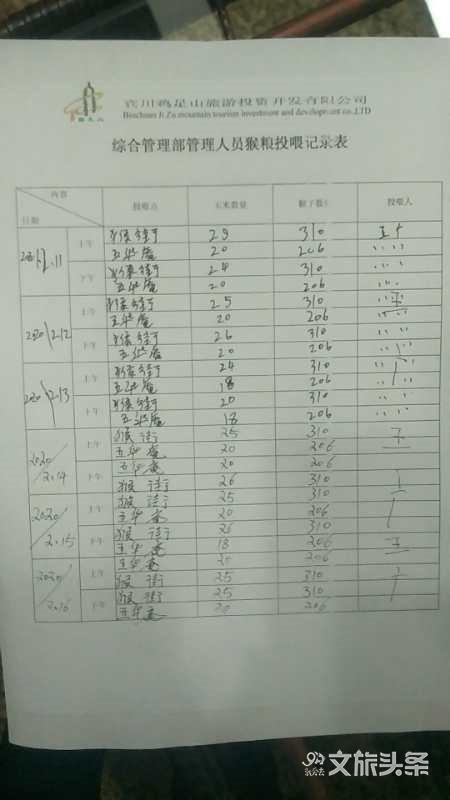 宾川鸡足山旅游投资开发有限公司
Binchuan Ji Zu mountain tourism investment and development co.,LTD
综合管理部管理人员猴粮投喂记录表
内容 日期 投喂点 玉米数量 粒子数量 投喂人
2020 2.11 上午 猴街 29 310
五华庵 20 206 〃 〃
下午 猴街 24 310 〃 〃
五华庵 20 206 〃 〃
2020 2.12 上午 猴街 25 310
五华庵 20 206 〃 〃
下午 猴街 26 310 〃 〃
五华庵 20 206
2020 2.13 上午 猴街 24 310
五华庵 18 206
下午 猴街 20 310 〃 〃
五华庵 18 206 〃 〃
2020 2.14 上午 猴街 25 310
五华庵 20 206
下午 五华庵 20 206
猴街 26 310
2020 2.15 上午 猴街 25 310
五华庵 20 206
下午 猴街 26 310
五华庵 18 206
2020 2.16 上午 五华庵 20 206
猴街 25 310
下午 猴街 25 310
五华庵 20 206
文旅头条